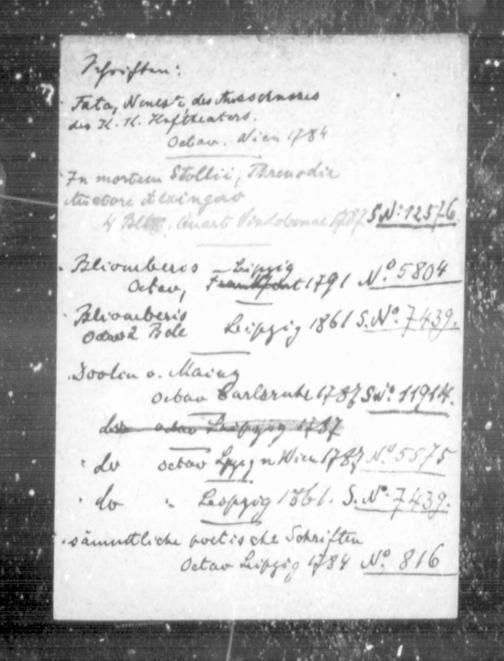 Schriften:
Fata, Neueste des Ausschusses
des K. K. Hoftheaters.
Octav. Wien 1784
In mortem Stollii, Threnodia
Auctore Alxingero
4 Bltt. Quart Vindobonae 1787 S.No: 12576.
Bliomberis Leipzig
Octav, Frankfurt 1791 No. 5804
Bliomberis
Octav 2 Bde Leipzig 1861 S.No. 7439.
Doolin v. Mainz
Octav Carlsruhe 1787 S.No: 11914.
do octav Leipzig 1787
" do octav Lpzg u Wien 1787 No 5575
" do " Leipzig 1861. S.No. 7439.
sämmtliche poetische Schriften
Octav Leipzig 1784 No. 816